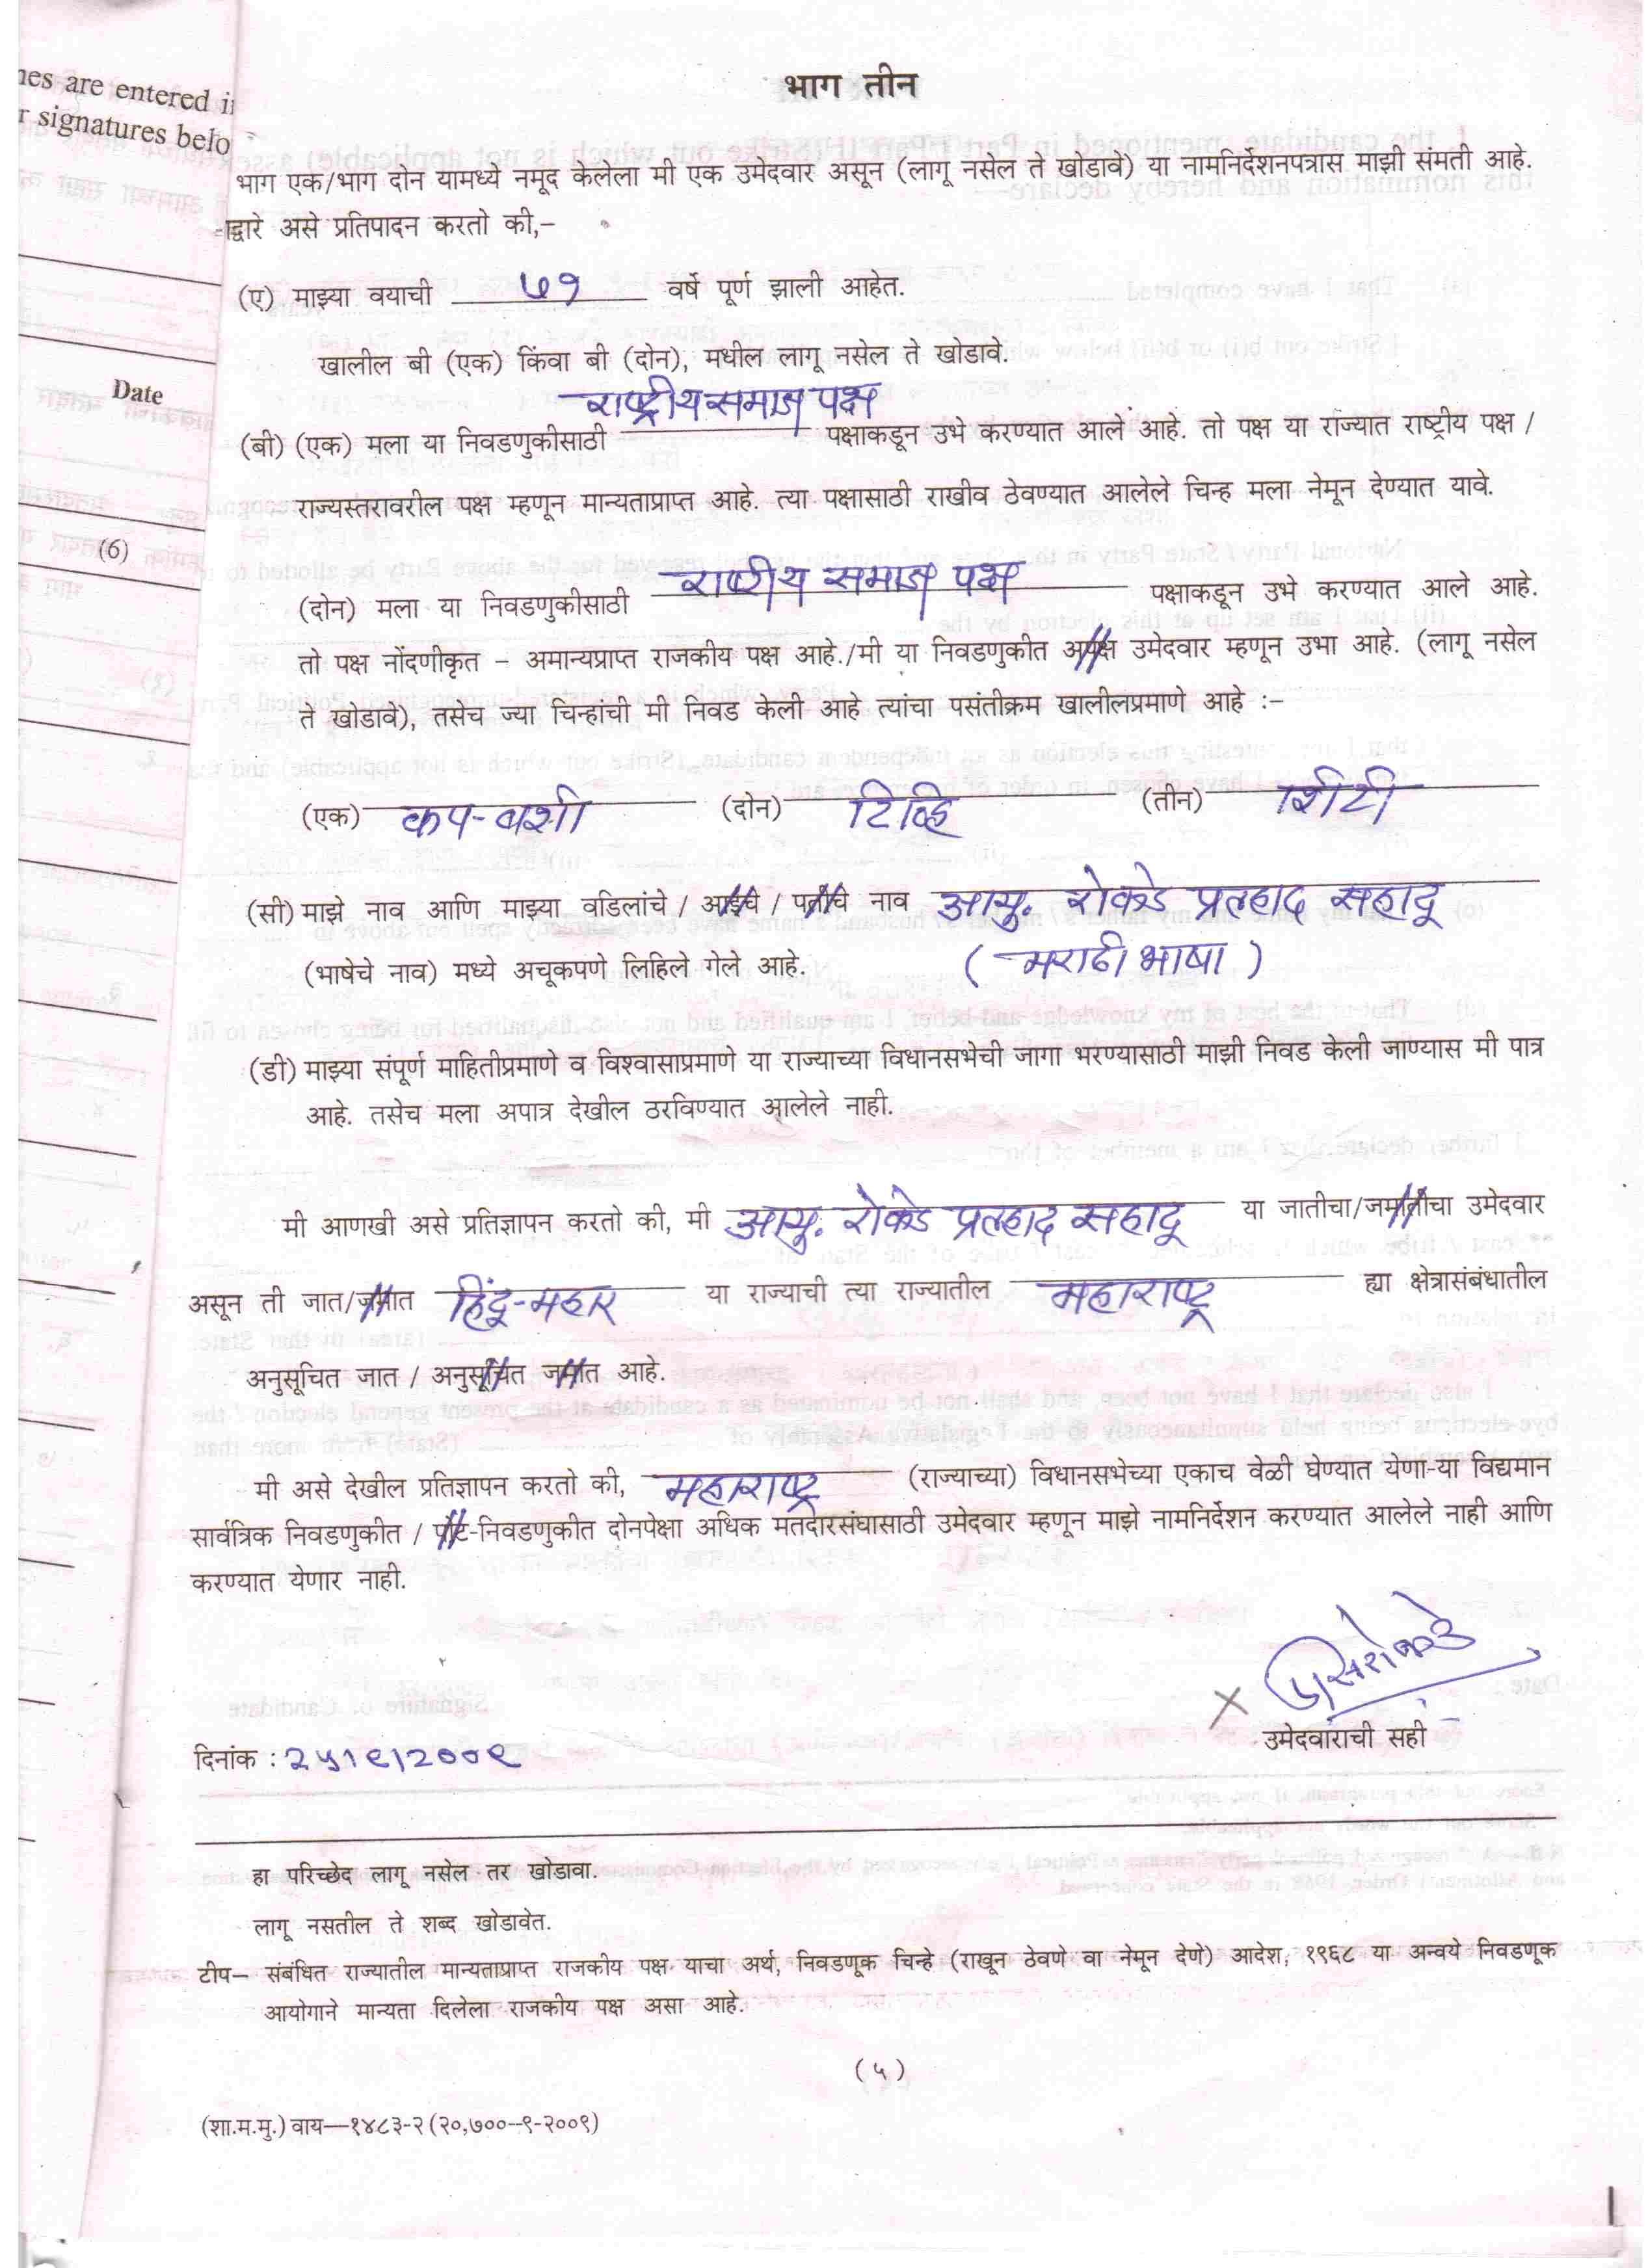 nes are entered i
r signatures belo
Date
(6)
भाग तीन
भाग एक/भाग दोन यामध्ये नमूद केलेला मी एक उमेदवार असून (लागू नसेल ते खोडावे) या नामनिर्देशनपत्रास माझी संमती आहे.
द्वारे असे प्रतिपादन करतो की,–
(ए) माझ्या वयाची ७१ वर्षे पूर्ण झाली आहेत.
खालील बी (एक) किंवा बी (दोन), मधील लागू नसेल ते खोडावे.
राष्ट्रीय समाज पक्ष
(बी) (एक) मला या निवडणुकीसाठी पक्षाकडून उभे करण्यात आले आहे. तो पक्ष या राज्यात राष्ट्रीय पक्ष /
राज्यस्तरावरील पक्ष म्हणून मान्यताप्राप्त आहे. त्या पक्षासाठी राखीव ठेवण्यात आलेले चिन्ह मला नेमून देण्यात यावे.
(दोन) मला या निवडणुकीसाठी राष्ट्रीय समाज पक्ष पक्षाकडून उभे करण्यात आले आहे.
तो पक्ष नोंदणीकृत – अमान्यप्राप्त राजकीय पक्ष आहे./मी या निवडणुकीत अपक्ष उमेदवार म्हणून उभा आहे. (लागू नसेल
ते खोडावे), तसेच ज्या चिन्हांची मी निवड केली आहे त्यांचा पसंतीक्रम खालीलप्रमाणे आहे :–
(एक) कप-बशी (दोन) टिव्हि (तीन) शिटी
(सी) माझे नाव आणि माझ्या वडिलांचे / आईचे / पतीचे नाव आयु. रोकडे प्रल्हाद सहादू
(भाषेचे नाव) मध्ये अचूकपणे लिहिले गेले आहे. (मराठी भाषा)
(डी) माझ्या संपूर्ण माहितीप्रमाणे व विश्वासाप्रमाणे या राज्याच्या विधानसभेची जागा भरण्यासाठी माझी निवड केली जाण्यास मी पात्र
आहे. तसेच मला अपात्र देखील ठरविण्यात आलेले नाही.
मी आणखी असे प्रतिज्ञापन करतो की, मी आयु. रोकडे प्रल्हाद सहादू या जातीचा/जमातीचा उमेदवार
असून ती जात/जमात हिंदू-महार या राज्याची त्या राज्यातील महाराष्ट्र ह्या क्षेत्रासंबंधातील
अनुसूचित जात / अनुसूचित जमात आहे.
मी असे देखील प्रतिज्ञापन करतो की, महाराष्ट्र (राज्याच्या) विधानसभेच्या एकाच वेळी घेण्यात येणा-या विद्यमान
सार्वत्रिक निवडणुकीत / पोट-निवडणुकीत दोनपेक्षा अधिक मतदारसंघासाठी उमेदवार म्हणून माझे नामनिर्देशन करण्यात आलेले नाही आणि
करण्यात येणार नाही.
उमेदवाराची सही
दिनांक : २५/९/२००९
हा परिच्छेद लागू नसेल तर खोडावा.
लागू नसतील ते शब्द खोडावेत.
टीप— संबंधित राज्यातील मान्यताप्राप्त राजकीय पक्ष याचा अर्थ, निवडणूक चिन्हे (राखून ठेवणे वा नेमून देणे) आदेश, १९६८ या अन्वये निवडणूक
आयोगाने मान्यता दिलेला राजकीय पक्ष असा आहे.
(५)
(शा.म.मु.) वाय—१४८३-२ (२०,७००--९-२००९)